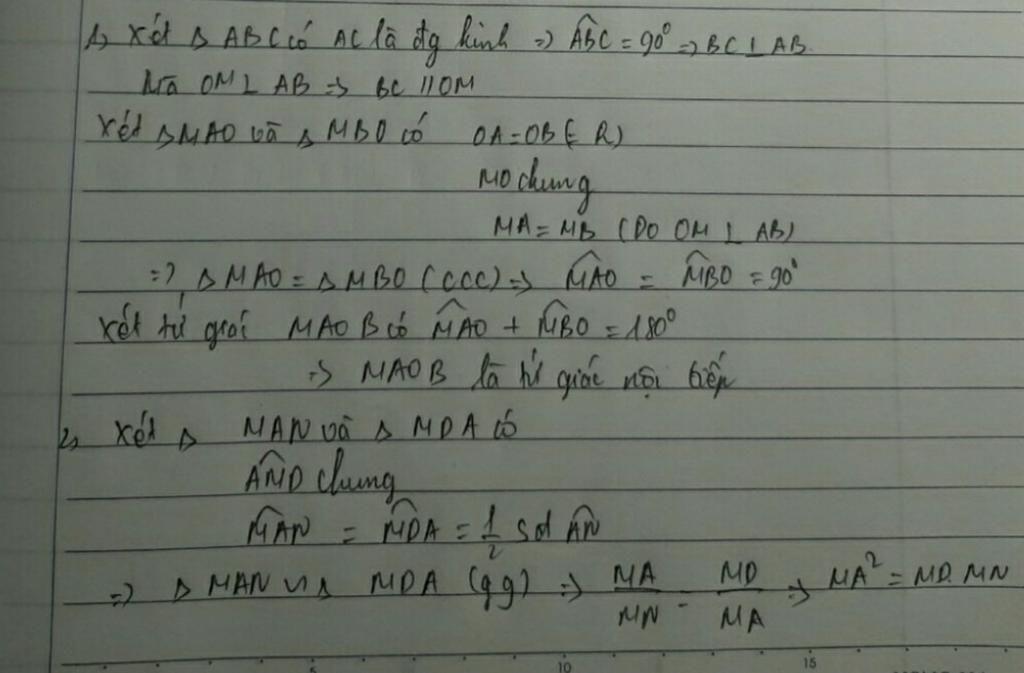 1, Xét Δ ABC có AC là đg kính => ABC = 90° => BC ⊥ AB.
Mà OM ⊥ AB => BC // OM
Xét Δ MAO và Δ MBO có OA = OB (= R)
MO chung
MA = MB (DO OM ⊥ AB)
=> Δ MAO = Δ MBO (CCC) => MAO = MBO = 90°
Xét tứ giác MAOB có MAO + MBO = 180°
=> MAOB là tứ giác nội tiếp
2, Xét Δ MAN và Δ MDA có
AMD chung
MAN = MDA = 1/2 Sđ AN
=> Δ MAN ∽ Δ MDA (gg) => MA/MN = MD/MA => MA² = MD. MN
10 15